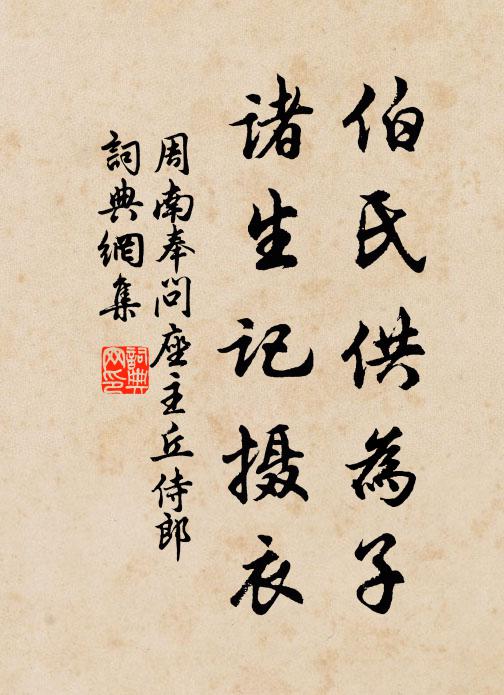 伯氏供為子
诸生记摄衣
周南奉問座主丘侍郎
詞典網集
詞典网印